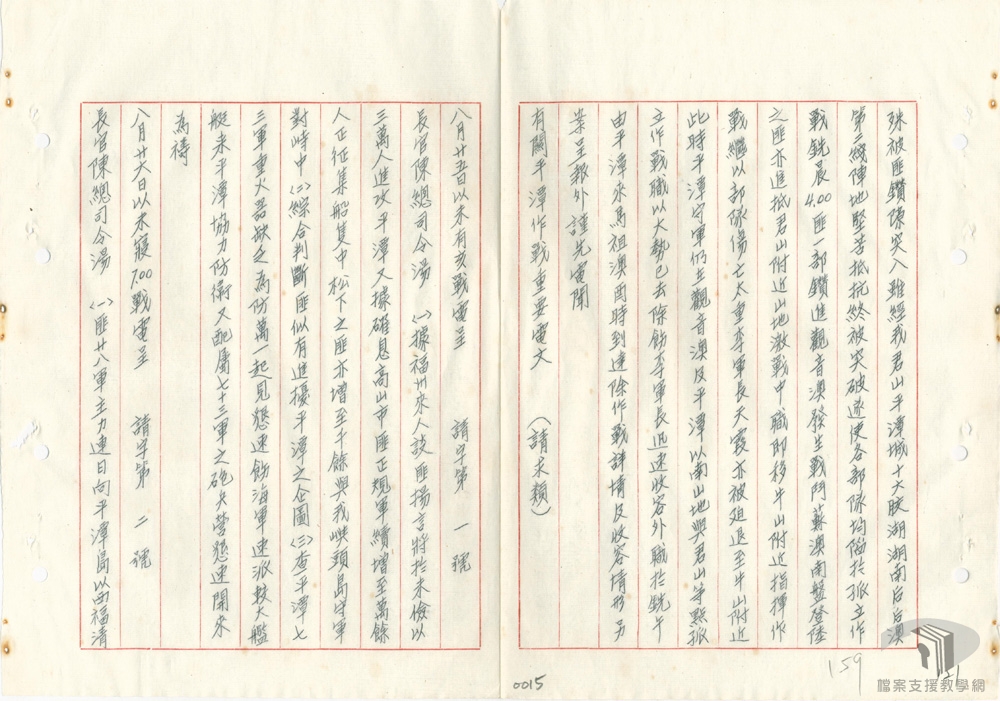 殊被匪鑽隙突入雖經我君山平潭城十大股湖湖南后后澳
第二綫陣地堅苦抵抗終被突破遂使各部隊均陷於孤立作
戰銑晨4.00匪一部鑽進觀音澳發生戰鬥蘇澳南盤登陸
之匪亦進抵君山附近山地激戰中職即移牛山附近指揮作
戰繼以部隊傷亡太重李軍長天霞亦被迫退至牛山附近
此時平潭守軍仍在觀音澳及平潭以南山地與君山等點孤
立作戰職以大勢已去除飭李軍長迅速收容外職於銑午
由平潭來馬祖澳酉時到達除作戰詳情及收容情形另
案呈報外謹先電聞
有關平潭作戰重要電文 (請求類)
八月廿五日以未有亥戰電呈 請字第 一 號
長官陳總司令湯 (一)據福州來人談匪揚言將於未儉以
三萬人進攻平潭又據確息高山市匪正規軍續增至萬餘
人正征集船隻中松下之匪亦增至千餘與我嶼頭島守軍
對峙中(二)綜合判斷匪似有進擾平潭之企圖(三)查平潭七
三軍重火器缺乏為防萬一起見懇速飭海軍速派較大艦
艇來平潭協力防衛又配屬七十三軍之砲兵營懇速開來
為禱
八月廿六日以未寢7.00戰電呈 請字第 二 號
長官陳總司令湯 (一)匪廿八軍主力連日向平潭島以西福清
0015
159
檔案支援教學網